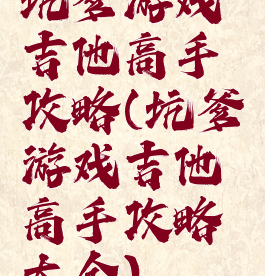 坑爹游戏
吉他高手
攻略(坑爹
游戏吉他
高手攻略
大全)